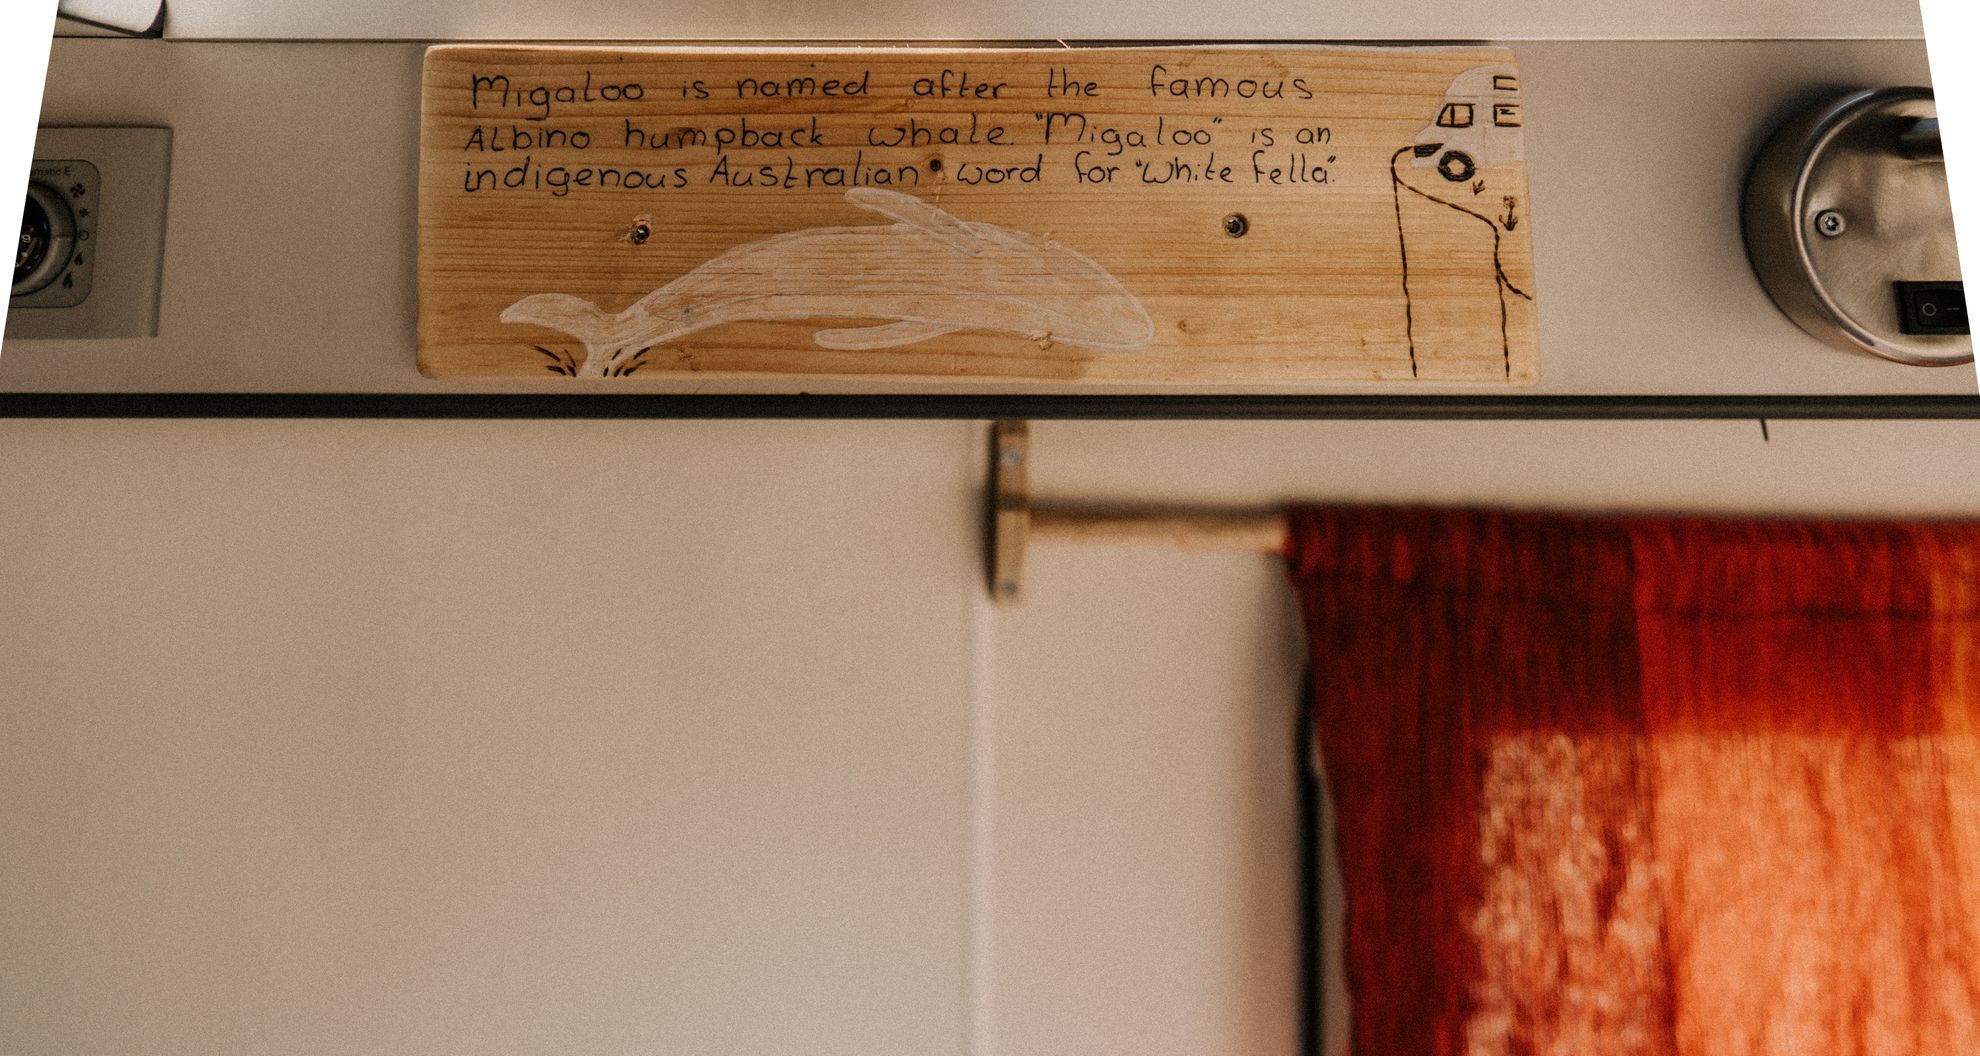 Migaloo is named after the famous
Albino humpback whale. "Migaloo" is an
indigenous Australian word for "White fella".